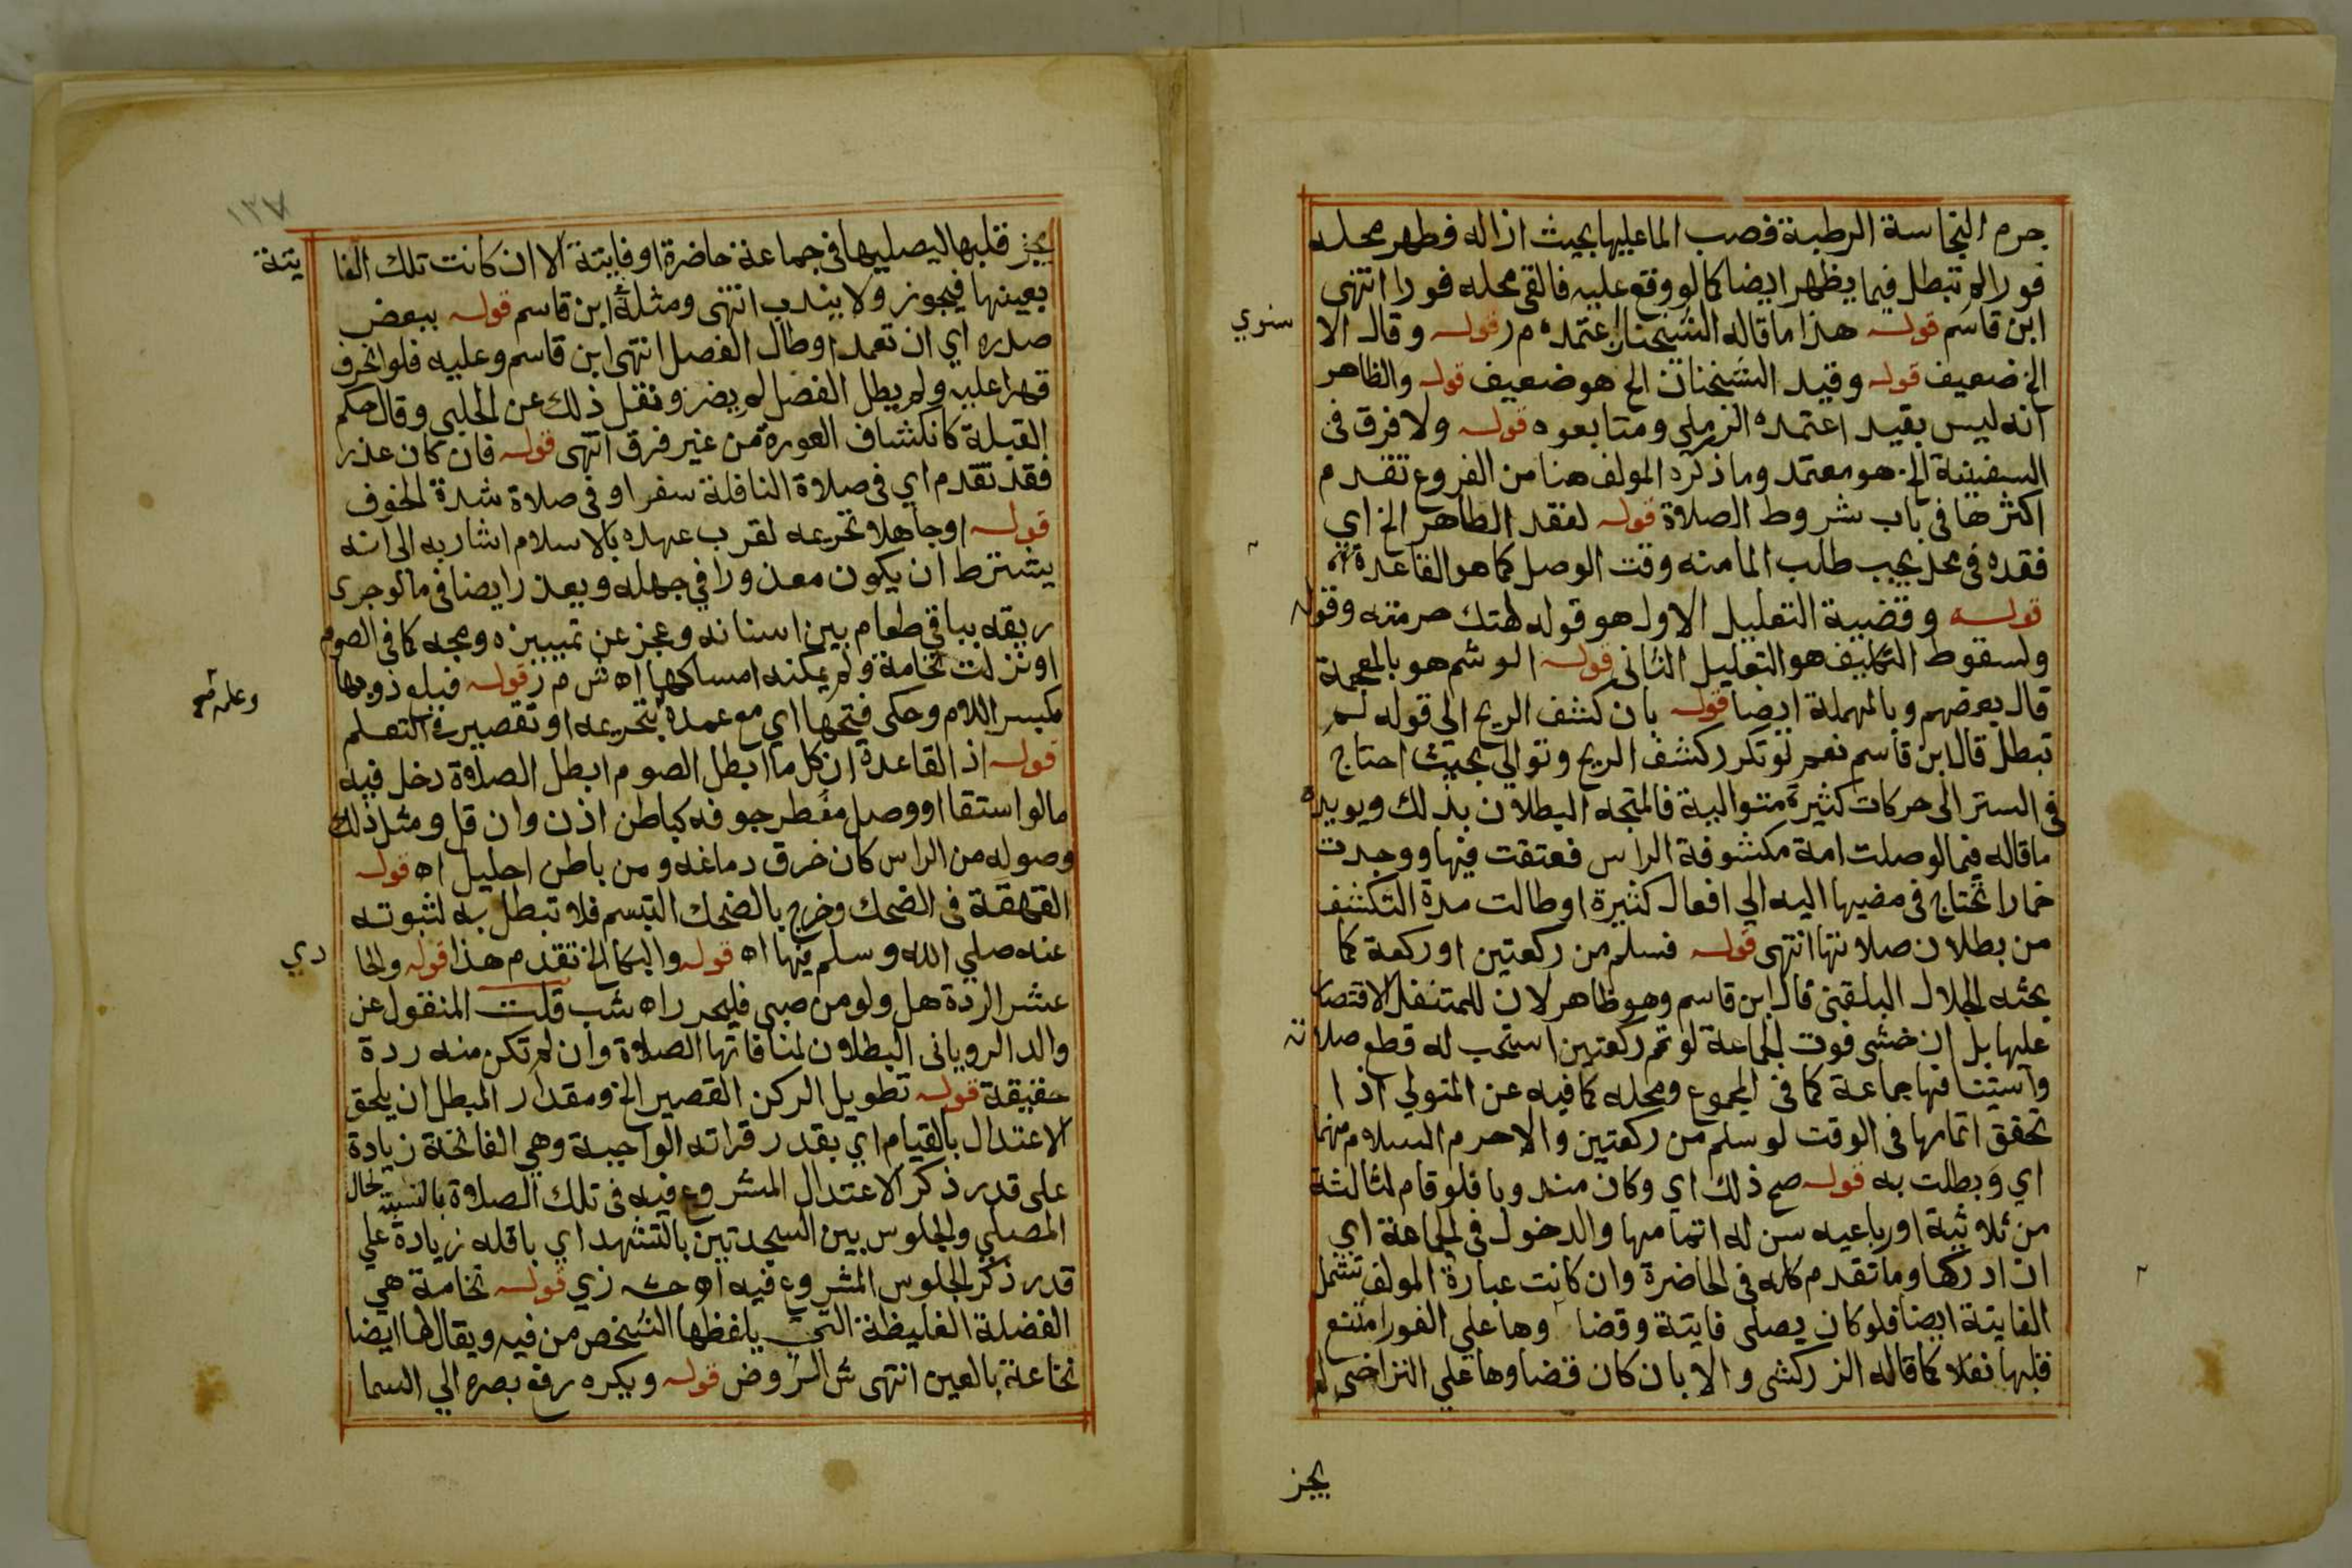 جرم النجاسة الرطبة فصب الما عليها بحيث ازاله فطهر محله
فورا لم تبطل فيما يظهر ايضا كما لو وقع عليه فالقى محله فورا انتهى
ابن قاسم قوله هذا ما قاله الشيخان اعتمده م ر قوله وقال الا
سنوي
الخ ضعيف قوله وقيد الشيخان الخ هو ضعيف قوله والظاهر
انه ليس بقيد اعتمده الرملي ومتابعوه قوله ولا فرق في
السفينة الخ هو معتمد وما ذكره المولف هنا من الفروع تقدم
اكثرها في باب شروط الصلاة قوله لفقد الطاهر الخ اي
فقده في محل يجب طلب الما منه وقت الوصل كما هو القاعدة
قوله وقضية التعليل الاول هو قوله لهتك حرمته وقوله
ولسقوط التكليف هو التعليل الثاني قوله الوشم هو بالمعجمة
قال بعضهم وبالمهملة ايضا قوله بان كشف الريح الي قوله لم
تبطل قال ابن قاسم نعم لو تكرر كشف الريح وتوالي بحيث احتاج
في الستر الى حركات كثيرة متوالية فالمتجه البطلان بذلك ويويده
ما قاله فيما لو صلت امة مكشوفة الراس فعتقت فيها ووجدت
خمارا تحتاج في مضيها اليه الي افعال كثيرة او طالت مدة التكشف
من بطلان صلاتها انتهى قوله فسلم من ركعتين او ركعة كما
بحثه الجلال البلقيني قال ابن قاسم وهو ظاهر لان للمتنفل الاقتصار
عليها بل ان خشى فوت الجماعة لو تم ركعتين استحب له قطع صلاته
واستينافها جماعة كما في المجموع ومحله كما فيه عن المتولي اذا
تحقق اتمامها في الوقت لو سلم من ركعتين والاحرم السلام منهما
اي وبطلت به قوله صح ذلك اي وكان مندوبا فلو قام لثالثة
من ثلاثية او رباعيه سن له اتمامها والدخول في الجماعة اي
ان ادركها وما تقدم كله في الحاضرة وان كانت عبارة المولف تشمل
الفايتة ايضا فلو كان يصلى فايتة وقضاوها علي الفور امتنع
قلبها نفلا كما قاله الزركشى والا بان كان قضاوها علي التراخى لم
يجز
١٣٨
يجز قلبها ليصليها في جماعة حاضرة او فايتة الا ان كانت تلك الفا
يتة
بعينها فيجوز ولا يندب انتهى ومثله ابن قاسم قوله ببعض
صدره اي ان تعمد او طال الفصل انتهى ابن قاسم وعليه فلو انحرف
قهرا عليه ولم يطل الفصل لم يضر ونقل ذلك عن الحلبي وقال حكم
القبلة كانكشاف العورة من غير فرق انتهى قوله فان كان عذر
فقد تقدم اي في صلاة النافلة سفرا وفي صلاة شدة الخوف
قوله او جاهلا تحريمه لقرب عهده بالاسلام اشار به الى انه
يشترط ان يكون معذورا في جهله ويعذر ايضا في ما لو جرى
ريقه بباقي طعام بين اسنانه وعجز عن تمييزه ومجه كما في الصوم
او نزلت نخامة ولم يمكنه امساكها اه ش م ر قوله فبلع ذوبها
مكسر اللام وحكى فتحها اي مع عمده بتحريمه او تقصيره في التعلم
قوله اذ القاعدة ان كل ما ابطل الصوم ابطل الصلاة دخل فيه
ما لو استقا او وصل مفطر جوفه كباطن اذن وان قل ومثل ذلك
وصوله من الراس كان خرق دماغه ومن باطن احليل اه قوله
القهقهة في الضحك وخرج بالضحك التبسم فلا تبطل به لثبوته
عنه صلي الله وسلم فيها اه قوله والبكا الخ تقدم هذا قوله والحا
دي
عشر الردة هل ولو من صبى فليحرر اه شب قلت المنقول عن
والد الروياني البطلان لمنافاتها الصلاة وان لم تكن منه ردة
حقيقة قوله تطويل الركن القصير الخ ومقدار المبطل ان يلحق
الاعتدال بالقيام اي بقدر قراته الواجبة وهي الفاتحة زيادة
على قدر ذكر الاعتدال المشروع فيه في تلك الصلاة بالنسبة لحال
المصلي والجلوس بين السجدتين بالتشهد اي باقله زيادة علي
قدر ذكر الجلوس المشروع فيه اه حشـ زي قوله نخامة هي
الفضلة الغليظة التي يلفظها الشخص من فيه ويقال لها ايضا
نخاعة بالعين انتهى ش الروض قوله ويكره رفع بصره الي السما